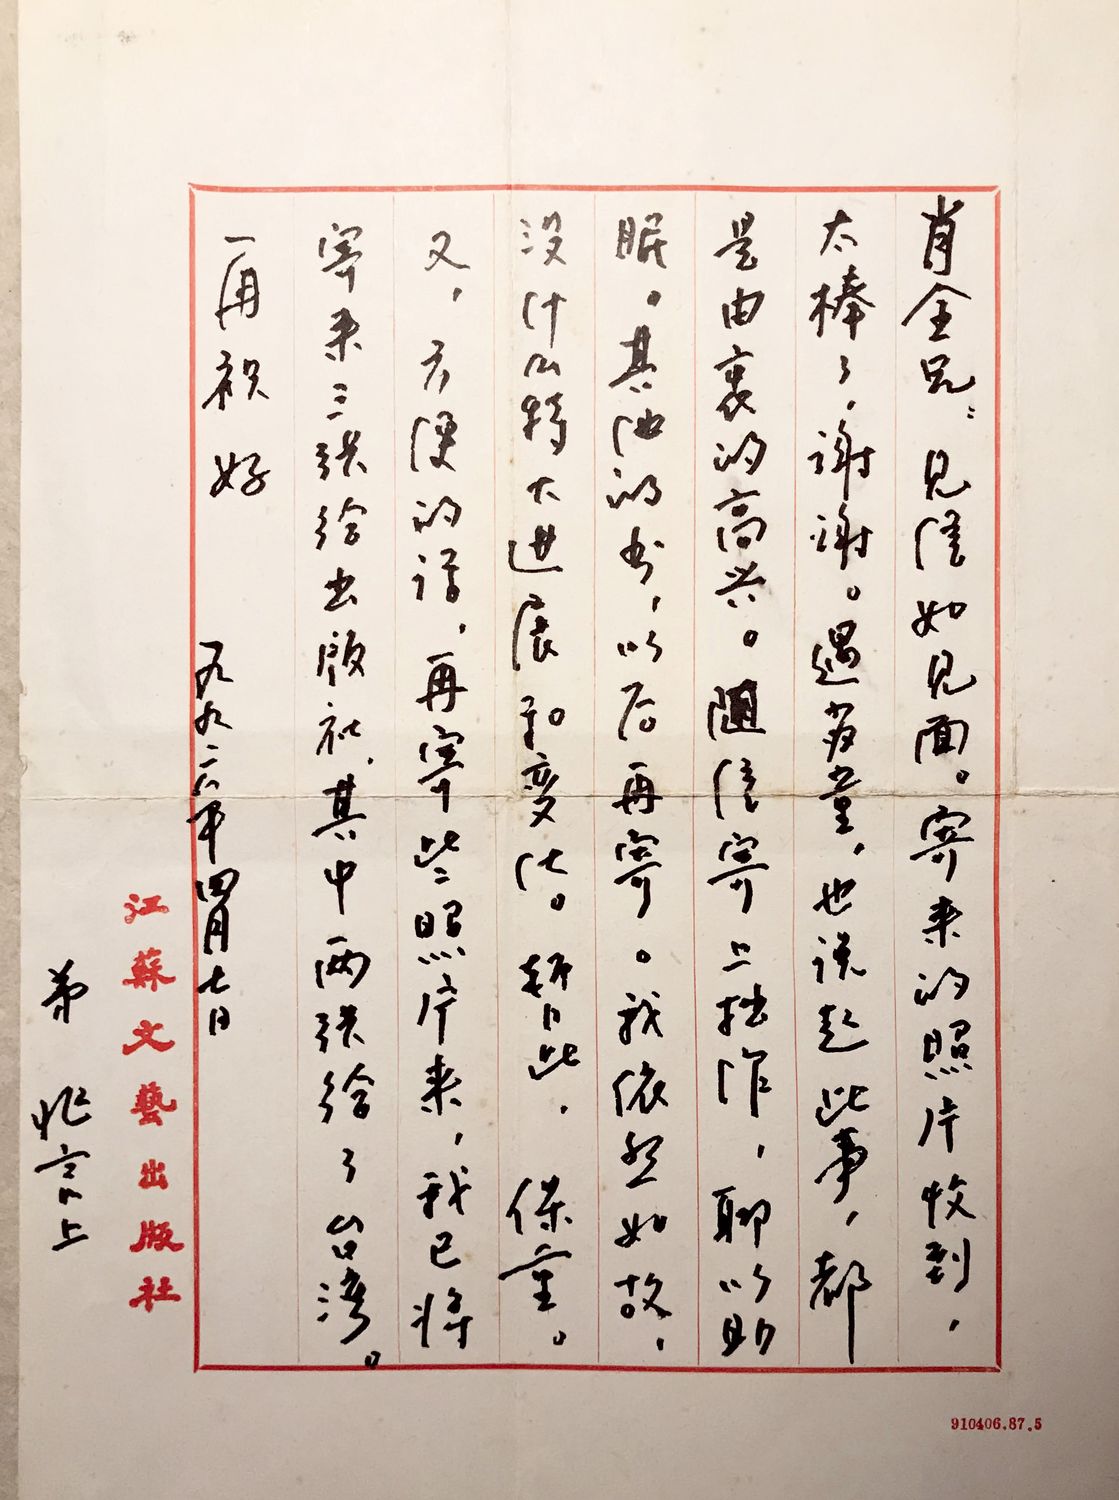 肖全兄：见信如见面。寄来的照片收到，
太棒了，谢谢。遇苏童，也说起此事，都
是由衷的高兴。随信寄上拙作，聊以助
眠。其他的书，以后再寄。我依然如故，
没什么特大进展和变化。暂此，保重。
又，方便的话，再寄些照片来，我已将
寄来三张给出版社，其中两张给了台湾。
一再祝好
一九九二年四月七日
江蘇文藝出版社
弟 兆言上
910406.87.5